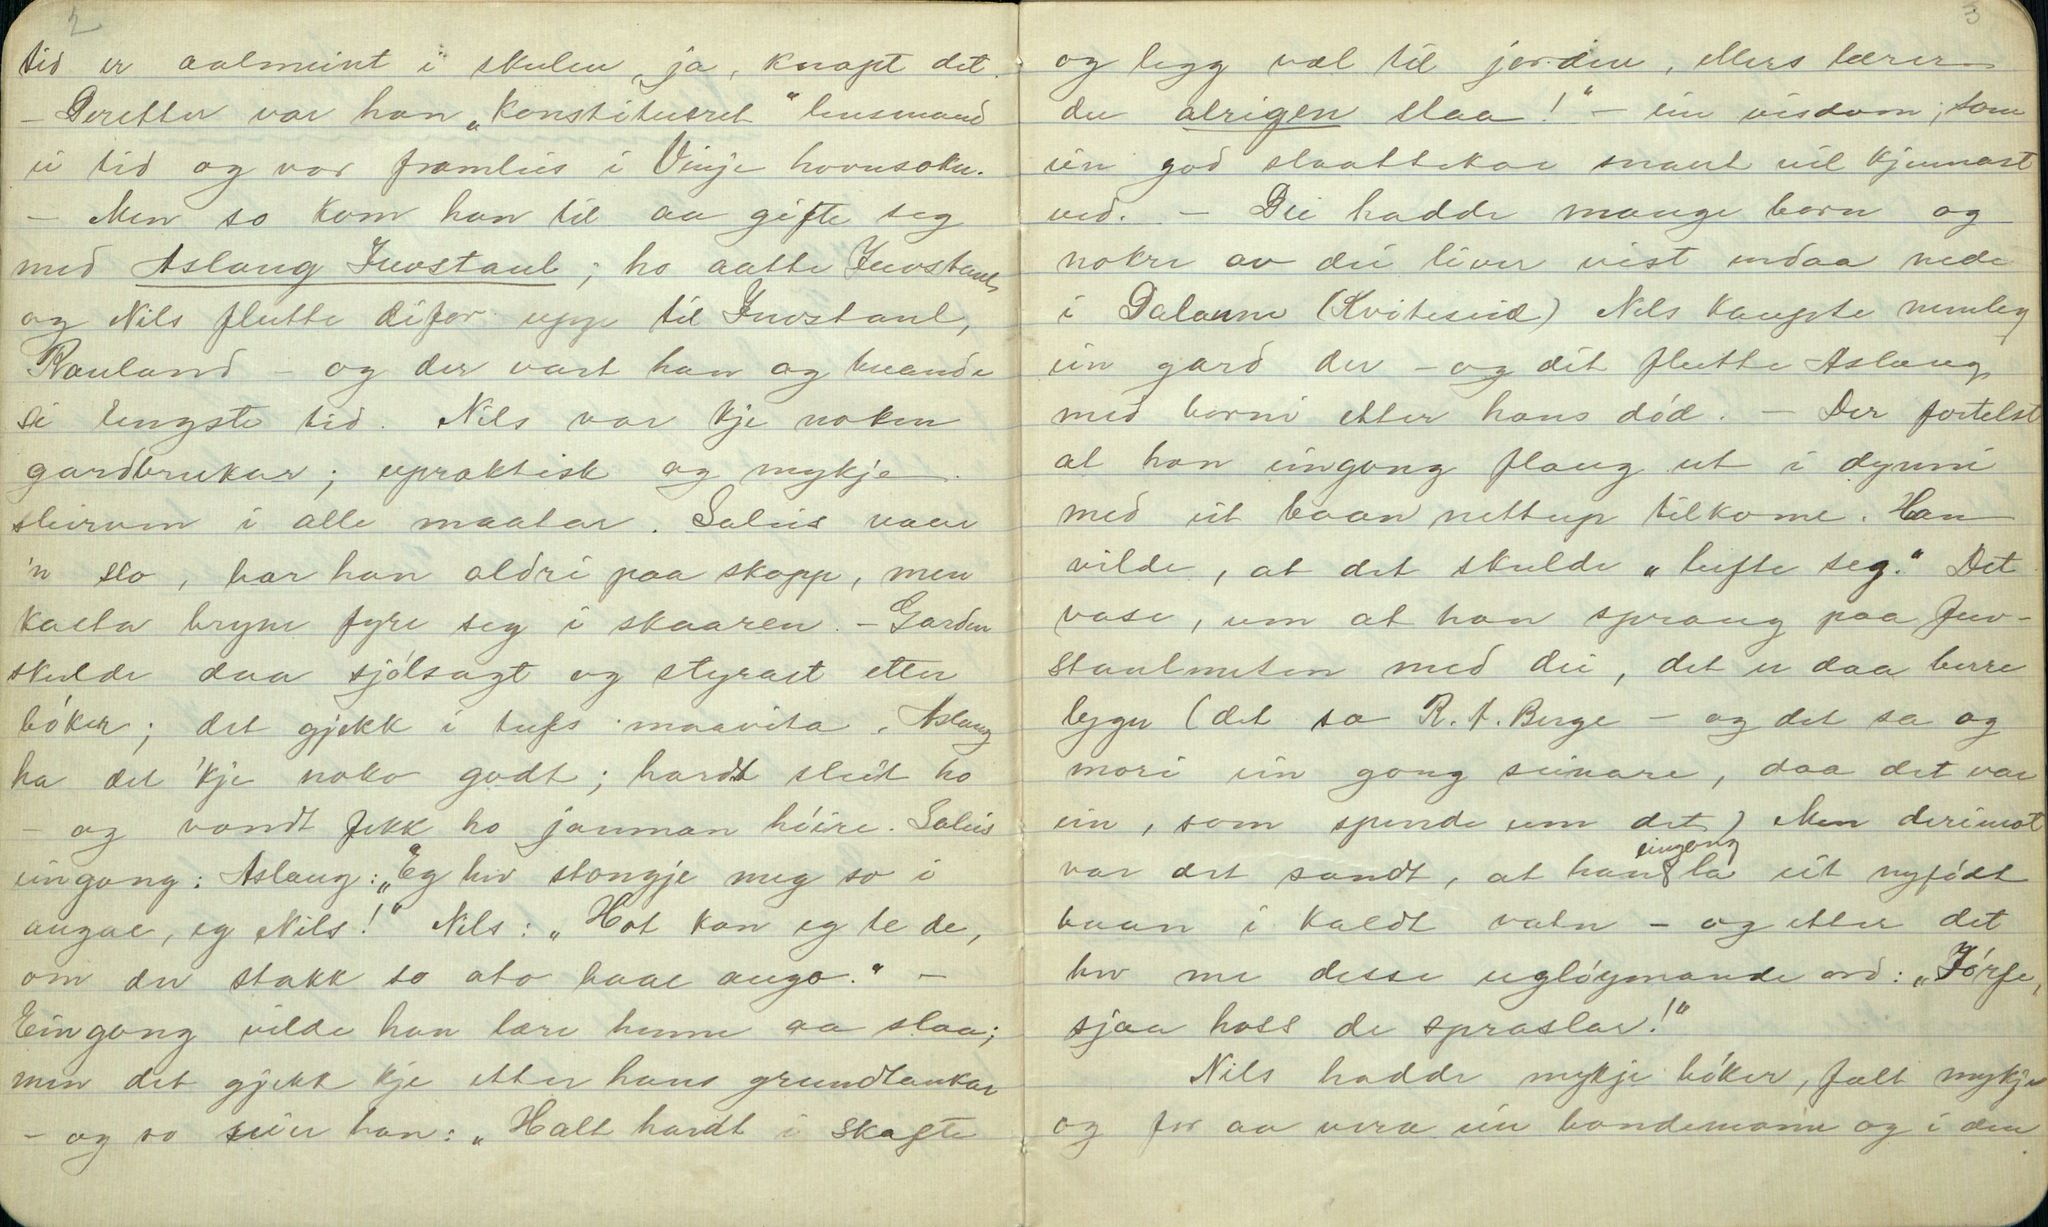 2
tid er aalmeint i skulen, ja, knapt det.
- Deretter var han „konstitueret" lensmand
ei tid og var framleis i Vinje hovusokn.
- Men so kom han til aa gifte seg
med Aslaug Juvstaul; ho aatte Juvstaul,
og Nils flutte difor upp til Juvstaul,
Rauland - og der vart han og buande
si lengste tid. Nils var kje noken
gardbrukar; upraktisk og mykje
sleirven i alle maatar. Soleis naar
'n slo, bar han aldri paa skopp, men
kasta bryne fyre seg i skaaren. - Garden
skulde daa sjølsagt og styrast etter
bøker; det gjekk i tufs maavita. Aslaug
ha det 'kje noko godt; hardt sleit ho
- og vondt fekk ho jamnan høire. Soleis
eingong: Aslaug: „Eg hev stongje meg so i
augae, eg Nils!" Nils: „Hot kan eg te de,
om du stakk to ato baae augo." -
Eingong vilde han lære henne aa slaa;
men det gjekk kje etter hans grundtankar
- og so seier han: „Halt hardt i skafte
3
og legg væl til jorden, ellers lærer
du alrigen slaa!" - ein visdom, som
ein god slaattekar snart vil kjennast
ved. - Dei hadde mange born og
nokre av dei liver vist endaa nede
i Dalanne (Kviteseid) Nils kaupte nemleg
ein gard der - og dit flutte Aslaug
med borni etter hans død. - Der fortelst
at han eingong flaug ut i dynni
med eit baan nettupp tilkome. Han
vilde, at det skulde „lufte seg." Det
vase, um at han sprang paa Juv-
staulnuten med dei, det er daa berre
lygn (det sa R. A. Berge - og det sa og
mori ein gong seinare, daa det var
ein, som spurde um det) Men derimot
var det sandt, at han eingong la eit nyfødt
baan i kaldt vatn - og etter det
hev me desse ugløymande ord: „Jørge,
sjaa hoss de spraslar!"
Nils hadde mykje bøker, fælt mykje
og for aa vera ein bondemann og i den